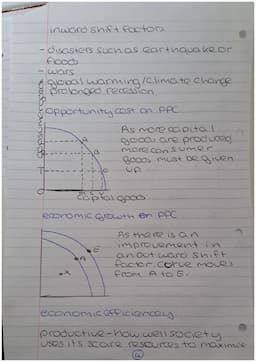 inward shift factors
- disasters such as earthquake or
floods
- wars
- global warming/climate change
- prolonged recession
opportunity cost on PPC
As more capital
goods are produced
more consumer
goods must be given
up
A
B
C
T
capital goods
economic growth on PPC
As there is an
improvement in
an outward shift
factor, curve moves
from A to E.
E
A
x
economic efficiency
productive - how well society
uses its scarce resources to maximise